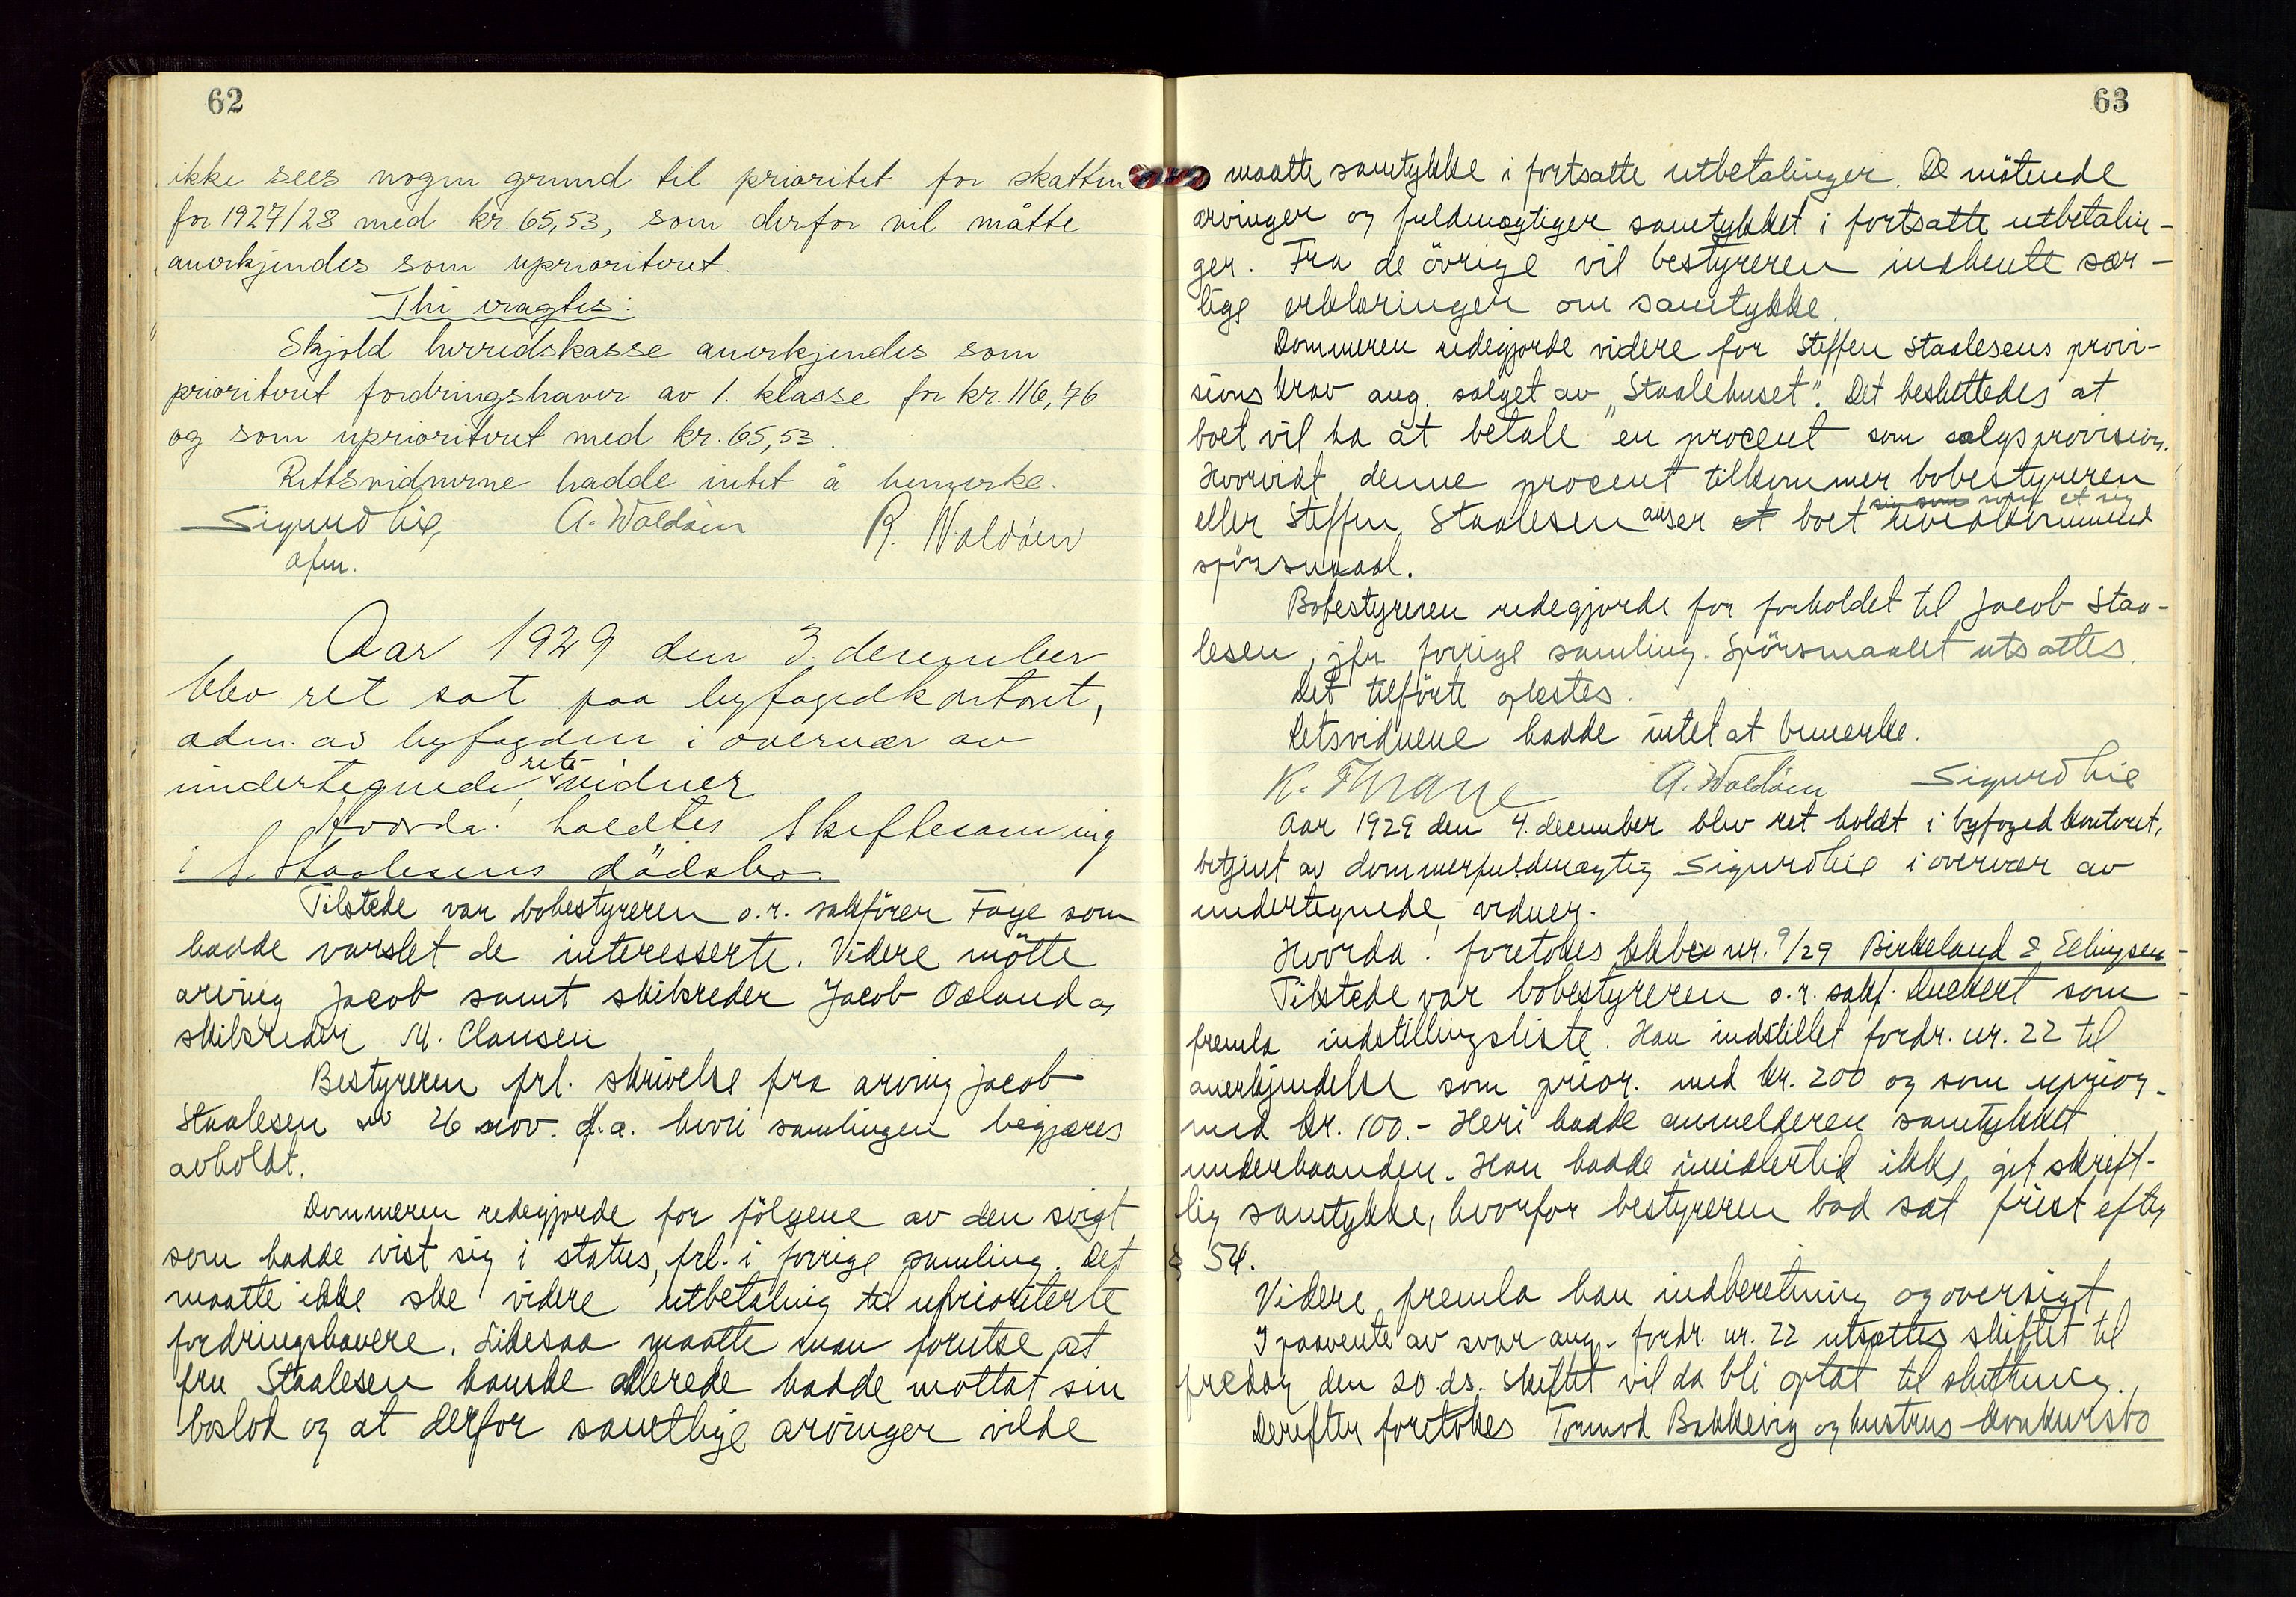 62
ikke sees nogen grund til prioritet for skatten
for 1927/28 med kr. 65,53, som derfor vil måtte
anerkjendes som uprioritert.
Thi eragtes:
Skjold herredskasse anerkjendes som
prioritert fordringshaver av 1. klasse for kr. 116,76
og som uprioritert med kr. 65,53.
Rettsvidnerne hadde intet å bemerke.
Sigurd Lie, A. Waldein R. Waldein
dfm.
Aar 1929 den 3. december
blev ret sat paa byfogedkontoret,
adm. av byfogden i overvær av
undertegnede rets vidner
Hvorda: holdtes Skiftesamling
i S. Staalesens dödsbo.
Tilstede var bobestyreren o.r. sakförer Faye som
hadde varslet de interesserte. Videre mötte
arving Jacob samt skibsreder Jacob Odland og
skibsreder M. Clausen
Bestyreren frl. skrivelse fra arving Jacob
Staalesen av 26 nov. d.a. hvori samlingen begjæres
avholdt.
Dommeren redegjorde for fölgene av den svigt
som hadde vist sig i status, frl. i forrige samling. Det
maatte ikke ske videre utbetaling til uprioriterte
fordringshavere. Likesaa maatte man forutse at
fru Staalesen kanske allerede hadde mottat sin
boslod og at derfor samtlige arvinger vilde
63
maatte samtykke i fortsatte utbetalinger. De mötende
arvinger og fuldmægtiger samtykket i fortsatte utbetalin-
ger. Fra de övrige vil bestyreren indhente sær-
lige erklæringer om samtykke.
Dommeren redegjorde videre for Steffen Staalesens provi-
sions krav ang. salget av „Staalehuset". Det besluttedes at
boet vil ha at betale en procent som salgsprovision.
Hvorvidt denne procent tilkommer bobestyreren
sig som som et sig
eller Steffen Staalesen anser et boet uvedkommende
spörsmaal.
Bobestyreren redegjorde for forholdet til Jacob Staa-
lesen, jfr. forrige samling. Spörsmaalet utsattes.
Det tilförte oplestes.
Retsvidnene hadde intet at bemerke.
K. Thrane A. Waldein Sigurd Lie
Aar 1929 den 4. december blev ret holdt i byfogedkontoret,
betjent av dommerfuldmægtig Sigurd Lie i overvær av
undertegnede vidner.
Hvorda: foretokes kkbo nr. 9/29 Birkeland & Ellingsen
Tilstede var bobestyreren o.r. sakf. Duckert som
fremla indstillingsliste. Han indstillet fordr. nr. 22 til
anerkjendelse som prior. med kr. 200 og som uprior.
med kr. 100.- Heri hadde anmelderen samtykket
underhaanden. Han hadde imidlertid ikke git skrift-
lig samtykke, hvorfor bestyreren bad sat frist efter
§ 54.
Videre fremla han indberetning og oversigt
I paavente av svar ang. fordr. nr. 22 utsattes skiftet til
fredag den 20 ds. Skiftet vil da bli optat til slutning.
Derefter foretokes Tormod Bakkevig og hustrus konkursbo